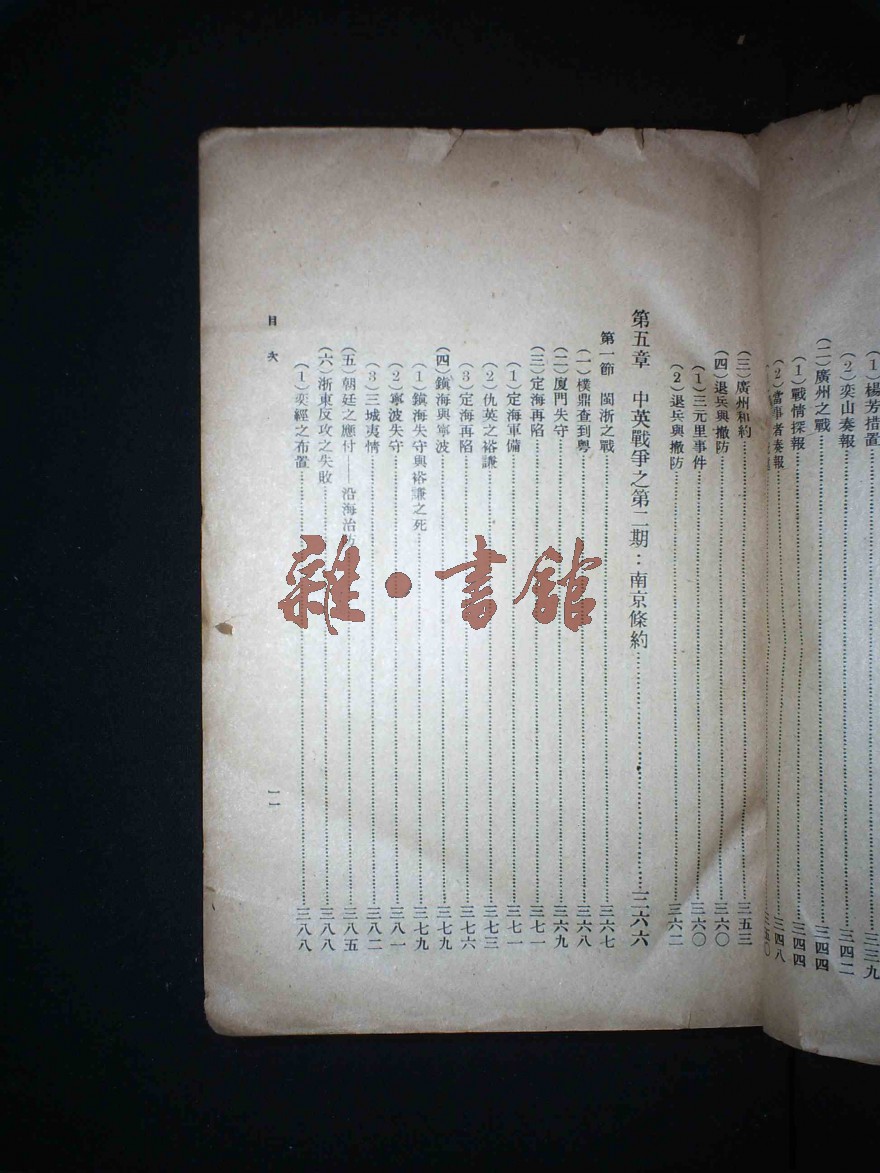 (1)楊芳措置……三三九
(2)奕山奏報……三四二
(二)廣州之戰……三四四
(1)戰情探報……三四四
(2)當事者奏報……三四八
三五〇
(三)廣州和約……三五三
(四)退兵與撤防……三六〇
(1)三元里事件……三六〇
(2)退兵與撤防……三六二
第五章 中英戰爭之第二期:南京條約……三六六
第一節 閩浙之戰……三六七
(一)樸鼎查到粵……三六八
(二)廈門失守……三六九
(三)定海再陷……三七一
(1)定海軍備……三七一
(2)仇英之裕謙……三七三
(3)定海再陷……三七六
(四)鎮海與寧波……三七九
(1)鎮海失守與裕謙之死……三七九
(2)寧波失守……三八一
(3)三城夷情……三八二
(五)朝廷之應付——沿海治防……三八五
(六)浙東反攻之失敗……三八八
(1)奕經之布置……三八八
目次
一一
雜·書館